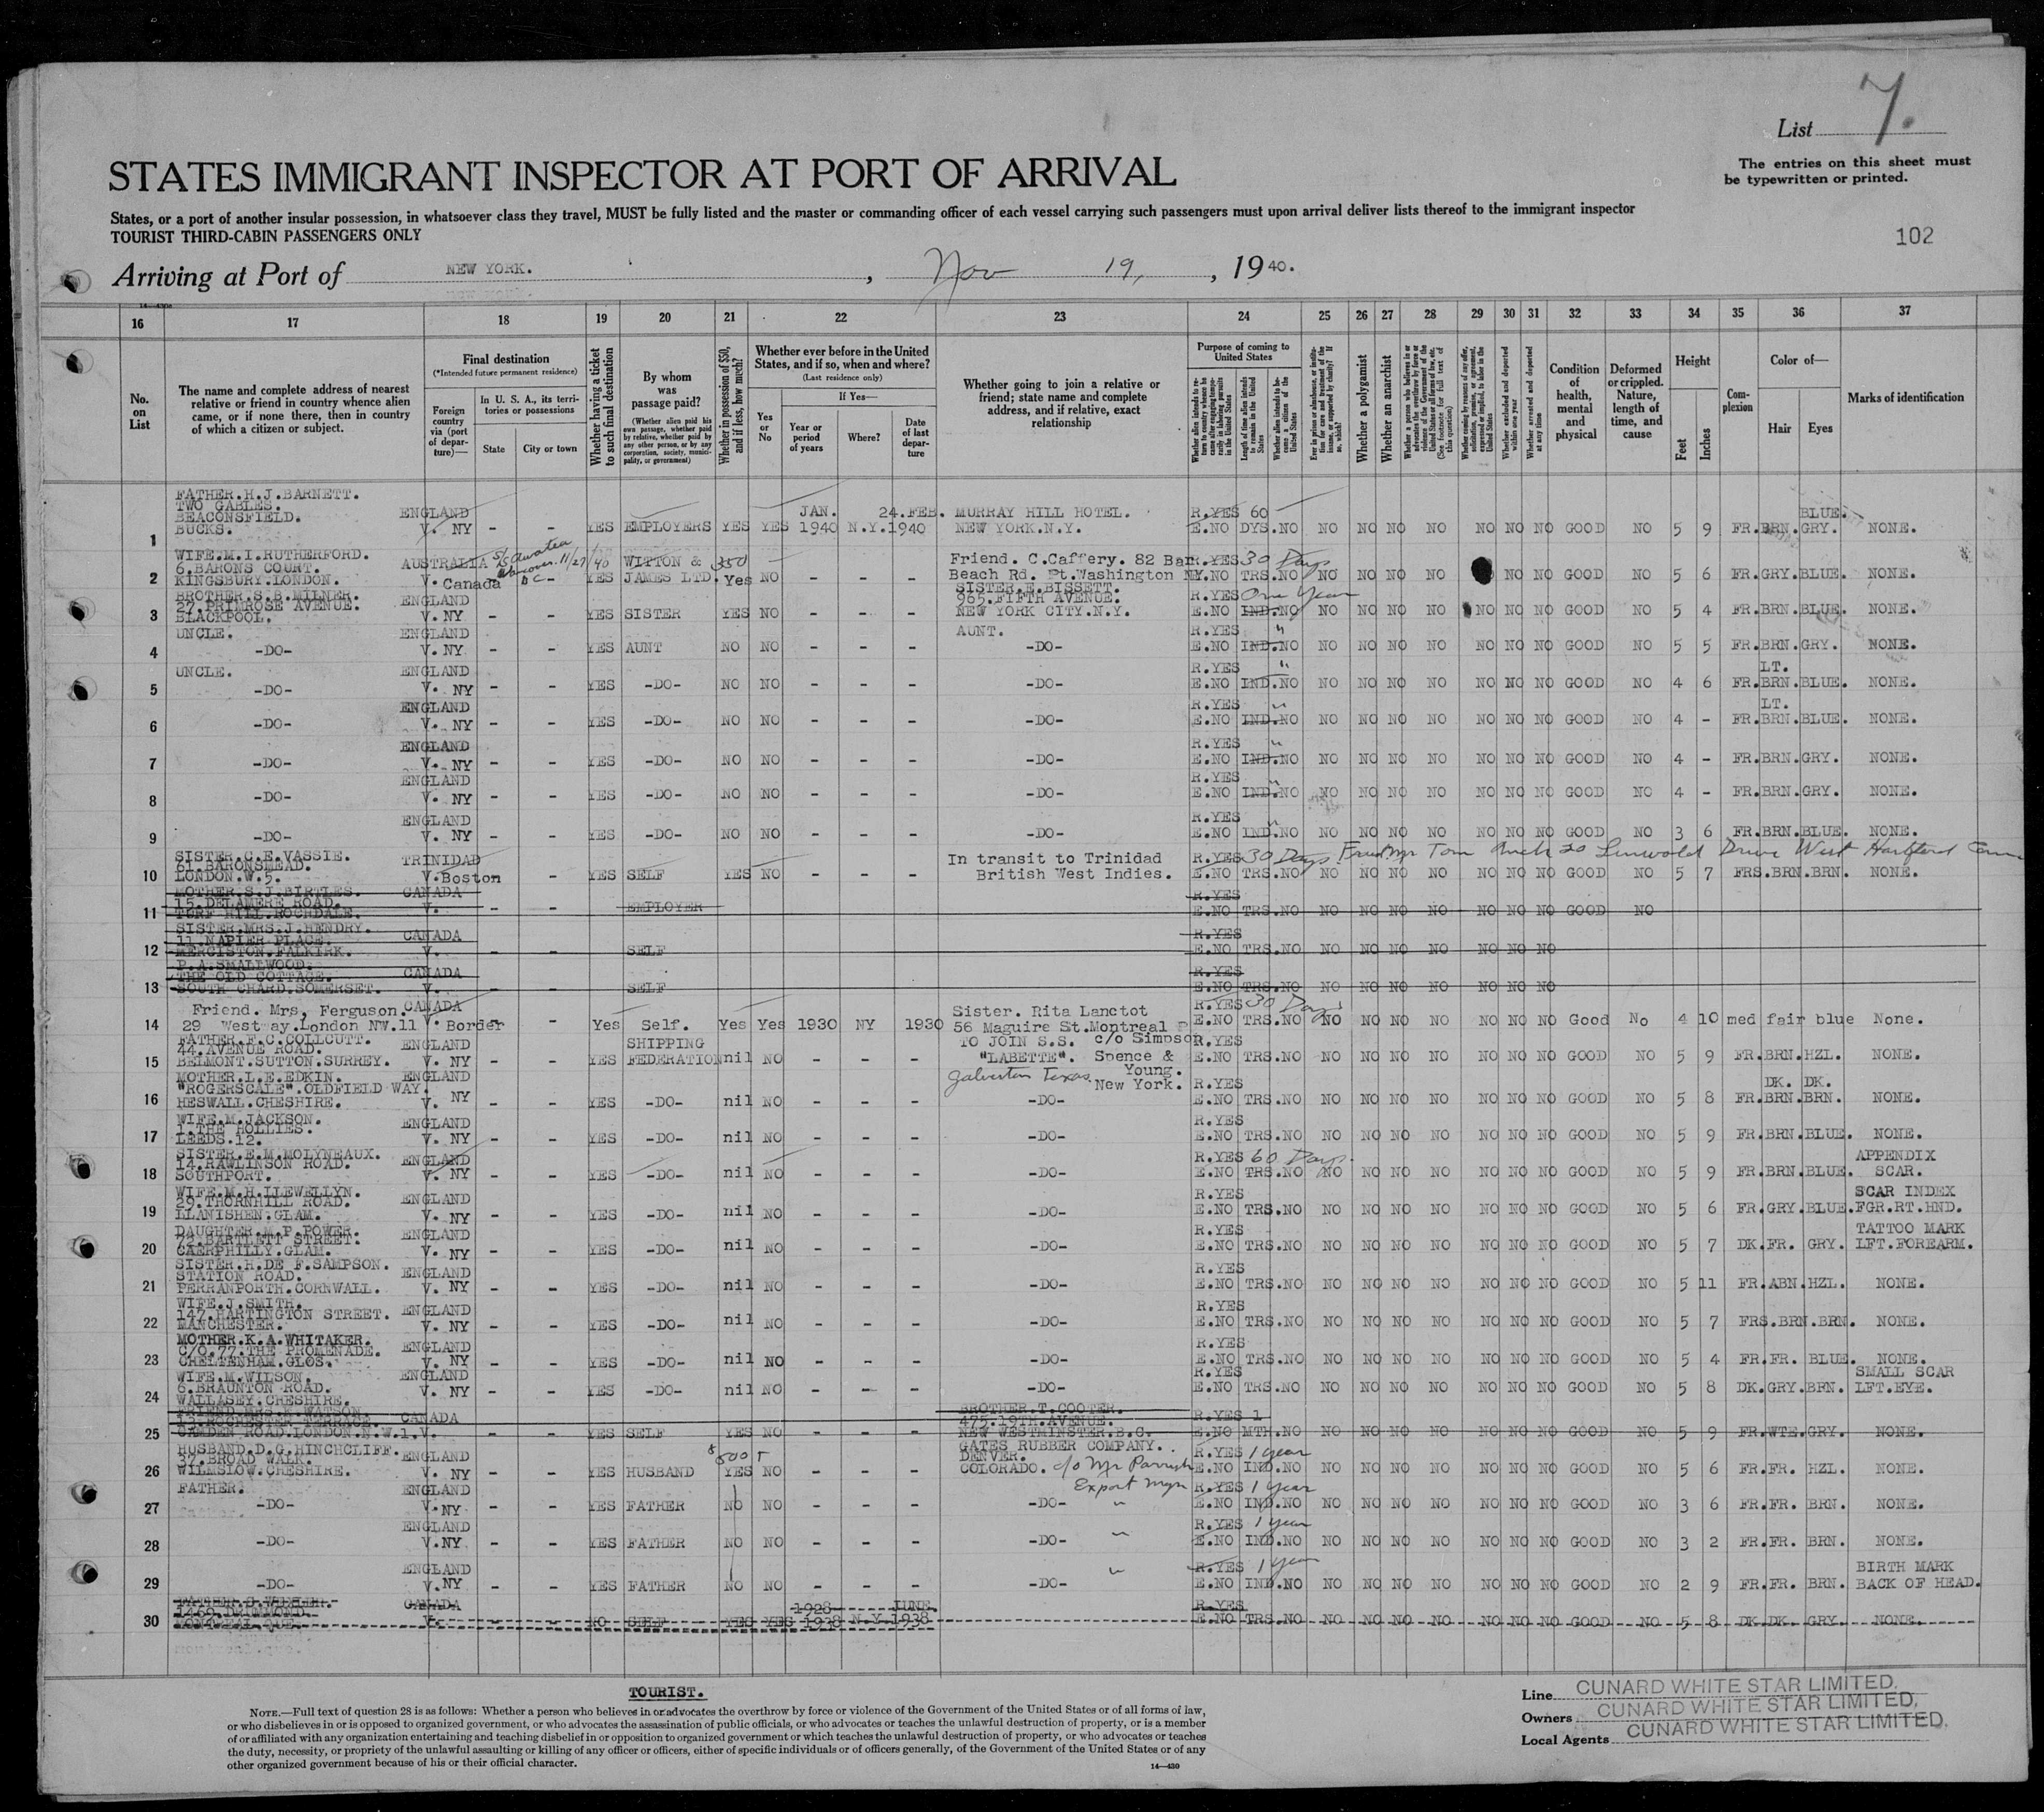 List 7.
STATES IMMIGRANT INSPECTOR AT PORT OF ARRIVAL
The entries on this sheet must
be typewritten or printed.
States, or a port of another insular possession, in whatsoever class they travel, MUST be fully listed and the master or commanding officer of each vessel carrying such passengers must upon arrival deliver lists thereof to the immigrant inspector
TOURIST THIRD-CABIN PASSENGERS ONLY
102
Arriving at Port of NEW YORK. , Nov 19, , 1940.
16 17 18 19 20 21 22 23 24 25 26 27 28 29 30 31 32 33 34 35 36 37
No. on List
The name and complete address of nearest relative or friend in country whence alien came, or if none there, then in country of which a citizen or subject.
Final destination
(*Intended future permanent residence)
Foreign country via (port of departure)—
In U. S. A., its territories or possessions
State City or town
Whether having a ticket to such final destination
By whom was passage paid?
(Whether alien paid his own passage, whether paid by relative, whether paid by any other person, or by any corporation, society, municipality, or government)
Whether in possession of $50, and if less, how much?
Whether ever before in the United States, and if so, when and where?
(Last residence only)
Yes or No
If Yes—
Year or period of years Where? Date of last departure
Whether going to join a relative or friend; state name and complete address, and if relative, exact relationship
Purpose of coming to United States
Whether a polygamist
Whether an anarchist
Condition of health, mental and physical
Deformed or crippled. Nature, length of time, and cause
Height
Feet Inches
Complexion
Color of—
Hair Eyes
Marks of identification
1 FATHER.H.J.BARNETT. TWO GABLES. BEACONSFIELD. BUCKS. ENGLAND V. NY - - YES EMPLOYERS YES YES JAN. 1940 N.Y. 24.FEB. 1940 MURRAY HILL HOTEL. NEW YORK.N.Y. R.YES 60 E.NO DYS.NO NO NO NO NO NO NO NO GOOD NO 5 9 FR.BRN. BLUE. GRY. NONE.
2 WIFE.M.I.RUTHERFORD. 6.BARONS COURT. KINGSBURY.LONDON. AUSTRALIA V. Canada S/S Awatea Vancouver. 11/27/40 BC - YES WITTON & JAMES LTD. 350 Yes NO - - - Friend. C.Caffery. 82 Bar Beach Rd. Pt.Washington NY. R.YES 30 Days E.NO TRS.NO NO NO NO NO NO NO GOOD NO 5 6 FR.GRY.BLUE. NONE.
3 BROTHER.S.B.MILNER. 27.PRIMROSE AVENUE. BLACKPOOL. ENGLAND V. NY - - YES SISTER YES NO - - - SISTER.E.BISSETT. 965.FIFTH AVENUE. NEW YORK CITY.N.Y. R.YES One Year E.NO IND.NO NO NO NO NO NO NO NO GOOD NO 5 4 FR.BRN.BLUE. NONE.
4 UNCLE. -DO- ENGLAND V. NY - - YES AUNT NO NO - - - AUNT. -DO- R.YES " E.NO IND.NO NO NO NO NO NO NO NO GOOD NO 5 5 FR.BRN.GRY. NONE.
5 UNCLE. -DO- ENGLAND V. NY - - YES -DO- NO NO - - - -DO- R.YES " E.NO IND.NO NO NO NO NO NO NO NO GOOD NO 4 6 FR. LT. BRN.BLUE. NONE.
6 -DO- ENGLAND V. NY - - YES -DO- NO NO - - - -DO- R.YES " E.NO IND.NO NO NO NO NO NO NO NO GOOD NO 4 - FR. LT. BRN.BLUE. NONE.
7 -DO- ENGLAND V. NY - - YES -DO- NO NO - - - -DO- R.YES " E.NO IND.NO NO NO NO NO NO NO NO GOOD NO 4 - FR.BRN.GRY. NONE.
8 -DO- ENGLAND V. NY - - YES -DO- NO NO - - - -DO- R.YES " E.NO IND.NO NO NO NO NO NO NO NO GOOD NO 4 - FR.BRN.GRY. NONE.
9 -DO- ENGLAND V. NY - - YES -DO- NO NO - - - -DO- R.YES " E.NO IND.NO NO NO NO NO NO NO NO GOOD NO 3 6 FR.BRN.BLUE. NONE.
10 SISTER.C.E.VASSIE. 61.BARONSMEAD. LONDON.W.5. TRINIDAD V.Boston - YES SELF YES NO - - - In transit to Trinidad British West Indies. R.YES 30 Days Friend Mr Tom 20 Linwold Drive West Hartford Conn E.NO TRS.NO NO NO NO NO NO NO NO GOOD NO 5 7 FRS.BRN.BRN. NONE.
11 MOTHER.S.J.BIRTLES. 15.DELAMERE ROAD. TURF HILL.ROCHDALE. CANADA V. - - EMPLOYER R.YES E.NO TRS.NO NO NO NO NO NO NO NO GOOD NO
12 SISTER.MRS.J.HENDRY. 11.NAPIER PLACE. MERCISTON.FALKIRK. CANADA V. - - SELF R.YES E.NO TRS.NO NO NO NO NO NO NO NO
13 P.A.SMALLWOOD. THE OLD COTTAGE. SOUTH CHARD.SOMERSET. CANADA V. - - SELF R.YES E.NO TRS.NO NO NO NO NO NO NO NO
14 Friend. Mrs, Ferguson. 29 Westway.London NW.11 CANADA V. Border - - Yes Self. Yes Yes 1930 NY 1930 Sister. Rita Lanctot 56 Maguire St.Montreal R.YES 30 Days E.NO TRS.NO NO NO NO NO NO NO NO Good No 4 10 med fair blue None.
15 FATHER.F.C.COLLCUTT. 44.AVENUE ROAD. BELMONT.SUTTON.SURREY. ENGLAND V. NY - - YES SHIPPING FEDERATION nil NO - - - TO JOIN S.S. "LABETTE". Galveston Texas. c/o Simpson Spence & Young. New York. R.YES E.NO TRS.NO NO NO NO NO NO NO NO GOOD NO 5 9 FR.BRN.HZL. NONE.
16 MOTHER.L.E.EDKIN. "ROGERSCALE".OLDFIELD WAY. HESWALL.CHESHIRE. ENGLAND V. NY - - YES -DO- nil NO - - - -DO- R.YES E.NO TRS.NO NO NO NO NO NO NO NO GOOD NO 5 8 FR. DK. BRN. DK. BRN. NONE.
17 WIFE.M.JACKSON. 1.THE HOLLIES. LEEDS.12. ENGLAND V. NY - - YES -DO- nil NO - - - -DO- R.YES E.NO TRS.NO NO NO NO NO NO NO NO GOOD NO 5 9 FR.BRN.BLUE. NONE.
18 SISTER.E.M.MOLYNEAUX. 14.RAWLINSON ROAD. SOUTHPORT. ENGLAND V. NY - - YES -DO- nil NO - - - -DO- R.YES 60 Days. E.NO TRS.NO NO NO NO NO NO NO NO GOOD NO 5 9 FR.BRN.BLUE. APPENDIX SCAR.
19 WIFE.M.H.LLEWELLYN. 29.THORNHILL ROAD. LLANISHEN.GLAM. ENGLAND V. NY - - YES -DO- nil NO - - - -DO- R.YES E.NO TRS.NO NO NO NO NO NO NO NO GOOD NO 5 6 FR.GRY.BLUE. SCAR INDEX FGR.RT.HND.
20 DAUGHTER.M.P.POWER. 72.BARTLETT STREET. CAERPHILLY.GLAM. ENGLAND V. NY - - YES -DO- nil NO - - - -DO- R.YES E.NO TRS.NO NO NO NO NO NO NO NO GOOD NO 5 7 DK.FR. GRY. TATTOO MARK LFT.FOREARM.
21 SISTER.H.DE F.SAMPSON. STATION ROAD. PERRANPORTH.CORNWALL. ENGLAND V. NY - - YES -DO- nil NO - - - -DO- R.YES E.NO TRS.NO NO NO NO NO NO NO NO GOOD NO 5 11 FR.ABN.HZL. NONE.
22 WIFE.J.SMITH. 147.HARTINGTON STREET. MANCHESTER. ENGLAND V. NY - - YES -DO- nil NO - - - -DO- R.YES E.NO TRS.NO NO NO NO NO NO NO NO GOOD NO 5 7 FRS.BRN.BRN. NONE.
23 MOTHER.K.A.WHITAKER. C/O.77.THE PROMENADE. CHELTENHAM.GLOS. ENGLAND V. NY - - YES -DO- nil NO - - - -DO- R.YES E.NO TRS.NO NO NO NO NO NO NO NO GOOD NO 5 4 FR.FR. BLUE. NONE.
24 WIFE.M.WILSON. 6.BRAUNTON ROAD. WALLASEY.CHESHIRE. ENGLAND V. NY - - YES -DO- nil NO - - - -DO- R.YES E.NO TRS.NO NO NO NO NO NO NO NO GOOD NO 5 8 DK.GRY.BRN. SMALL SCAR LFT.EYE.
25 FRIEND.MRS.E.WATSON. 13.ROCHESTER TERRACE. CAMDEN ROAD.LONDON.N.W.1. CANADA V. - - YES SELF YES NO - - - BROTHER.T.COOTER. 475.19TH.AVENUE. NEW WESTMINSTER.B.C. R.YES 1 E.NO MTH.NO NO NO NO NO NO NO NO GOOD NO 5 9 FR.WTE.GRY. NONE.
26 HUSBAND.D.G.HINCHCLIFF. 37.BROAD WALK. WILMSLOW.CHESHIRE. ENGLAND V. NY - - YES HUSBAND $500 YES NO - - - GATES RUBBER COMPANY. DENVER. COLORADO. c/o Mr Parrish Export Mgr R.YES 1 year E.NO IND.NO NO NO NO NO NO NO NO GOOD NO 5 6 FR.FR. HZL. NONE.
27 FATHER. -DO- ENGLAND V.NY - - YES FATHER NO NO - - - -DO- " R.YES 1 year E.NO IND.NO NO NO NO NO NO NO NO GOOD NO 3 6 FR.FR. BRN. NONE.
28 -DO- ENGLAND V.NY - - YES FATHER NO NO - - - -DO- " R.YES 1 year E.NO IND.NO NO NO NO NO NO NO NO GOOD NO 3 2 FR.FR. BRN. NONE.
29 -DO- ENGLAND V.NY - - YES FATHER NO NO - - - -DO- " R.YES 1 year E.NO IND.NO NO NO NO NO NO NO NO GOOD NO 2 9 FR.FR. BRN. BIRTH MARK BACK OF HEAD.
30 1469.DRUMMOND. MONTREAL.QUE. CANADA V. - - NO SELF YES YES 1928 1938 N.Y. JUNE 1938 R.YES E.NO TRS.NO NO NO NO NO NO NO NO GOOD NO 5 8 DK.DK. GRY. NONE.
TOURIST.
NOTE.—Full text of question 28 is as follows: Whether a person who believes in or advocates the overthrow by force or violence of the Government of the United States or of all forms of law,
or who disbelieves in or is opposed to organized government, or who advocates the assassination of public officials, or who advocates or teaches the unlawful destruction of property, or is a member
of or affiliated with any organization entertaining and teaching disbelief in or opposition to organized government or which teaches the unlawful destruction of property, or who advocates or teaches
the duty, necessity, or propriety of the unlawful assaulting or killing of any officer or officers, either of specific individuals or of officers generally, of the Government of the United States or of any
other organized government because of his or their official character.
14—430
Line CUNARD WHITE STAR LIMITED.
Owners CUNARD WHITE STAR LIMITED.
Local Agents CUNARD WHITE STAR LIMITED.